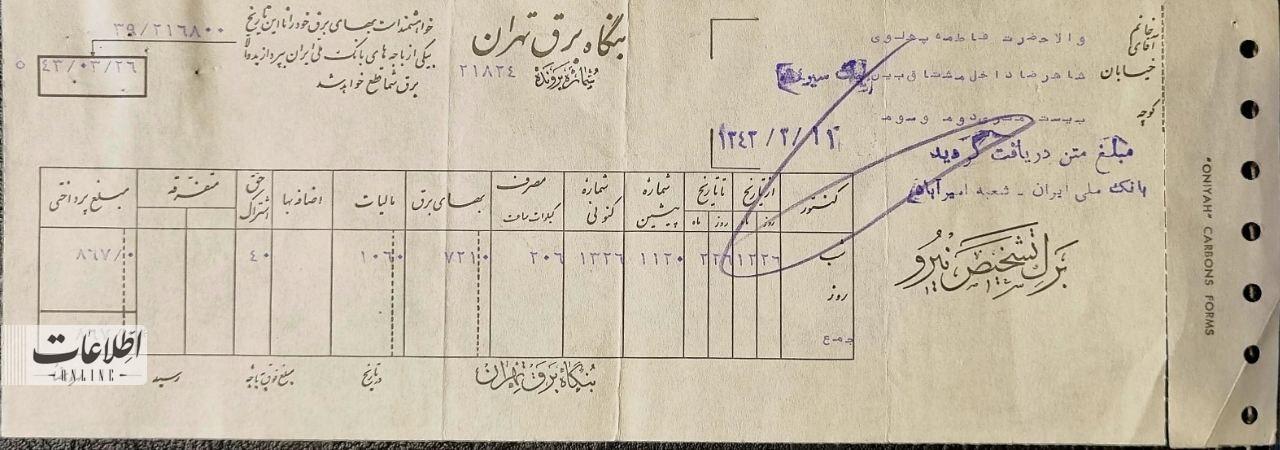 خانم
آقای
والاحضرت فاطمه پهلوی
خیابان
شاهرضا داخل مشتاق بین
کوچه
بیست متری دوم و سوم
مبلغ متن دریافت گردید
بانک ملی ایران - شعبه امیرآباد
برگ تشخیص نیرو
بنگاه برق تهران
شماره پرونده
۲۱۸۲۴
۱۳۴۳/۳/۱۱
خواهشمند است بهای برق خود را تا این تاریخ
بیکی از باجه های بانک ملی ایران بپردازید والا
برق شما قطع خواهد شد
۳۹/۲۱۶۸۰۰
۴۳/۰۳/۲۶
کنتور
از تاریخ
روز
تا تاریخ
روز ماه
شماره پیشین
شماره کنونی
مصرف کیلوات ساعت
بهای برق
مالیات
اضافه بها
حق اشتراک
متفرقه
مبلغ پرداختی
شب ۱۱۲۰ ۱۳۲۶ ۲۰۶ ۷۲۱۰ ۱۰۶۰ ۴۰ ۸۶۷/۰
روز
جمع
بنگاه برق تهران
در تاریخ
مبلغ فوق بباجه
رسید
اطلاعات
ONLINE
"ONIYAH" CARBONS FORMS